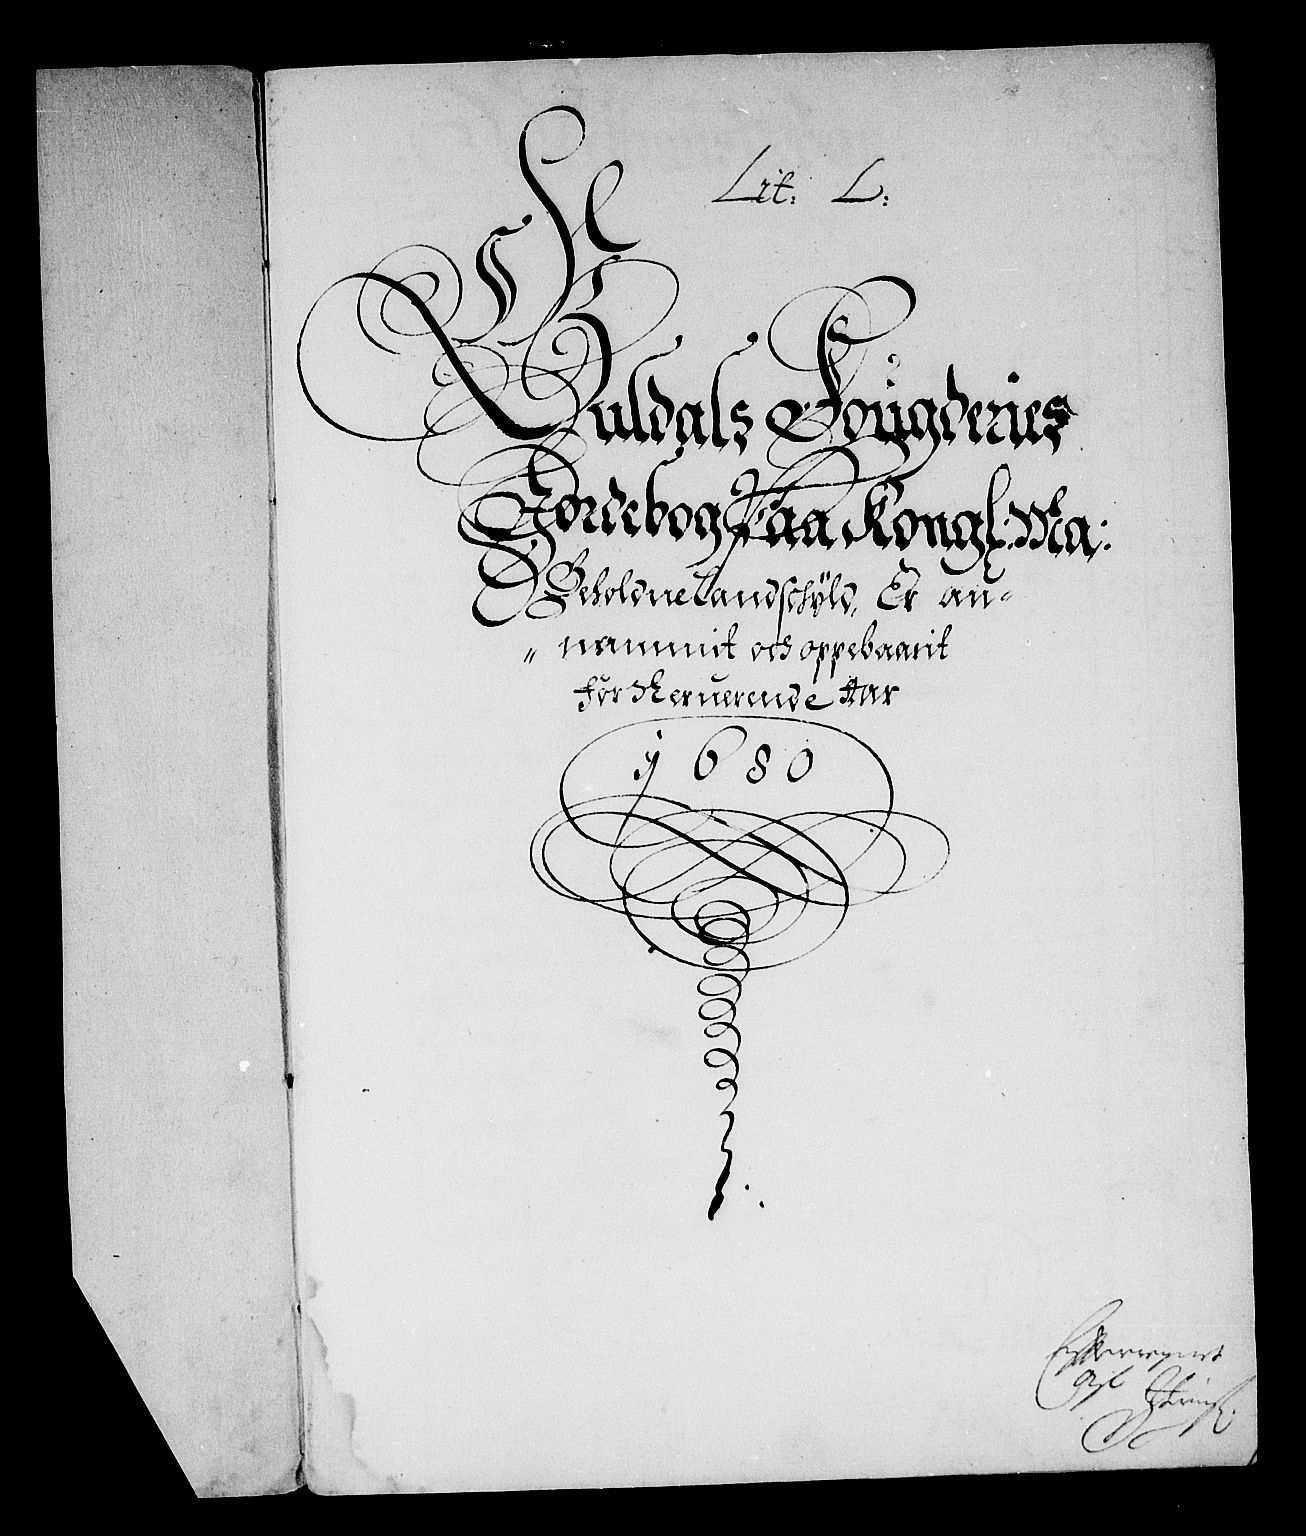 Lit: L:
Guldals Fougderies
Jordebog paa Kongl: Ma:
Beholdne Landschÿld, Er an-
„ nammit och oppebaarit
for Neruerende Aar
1680